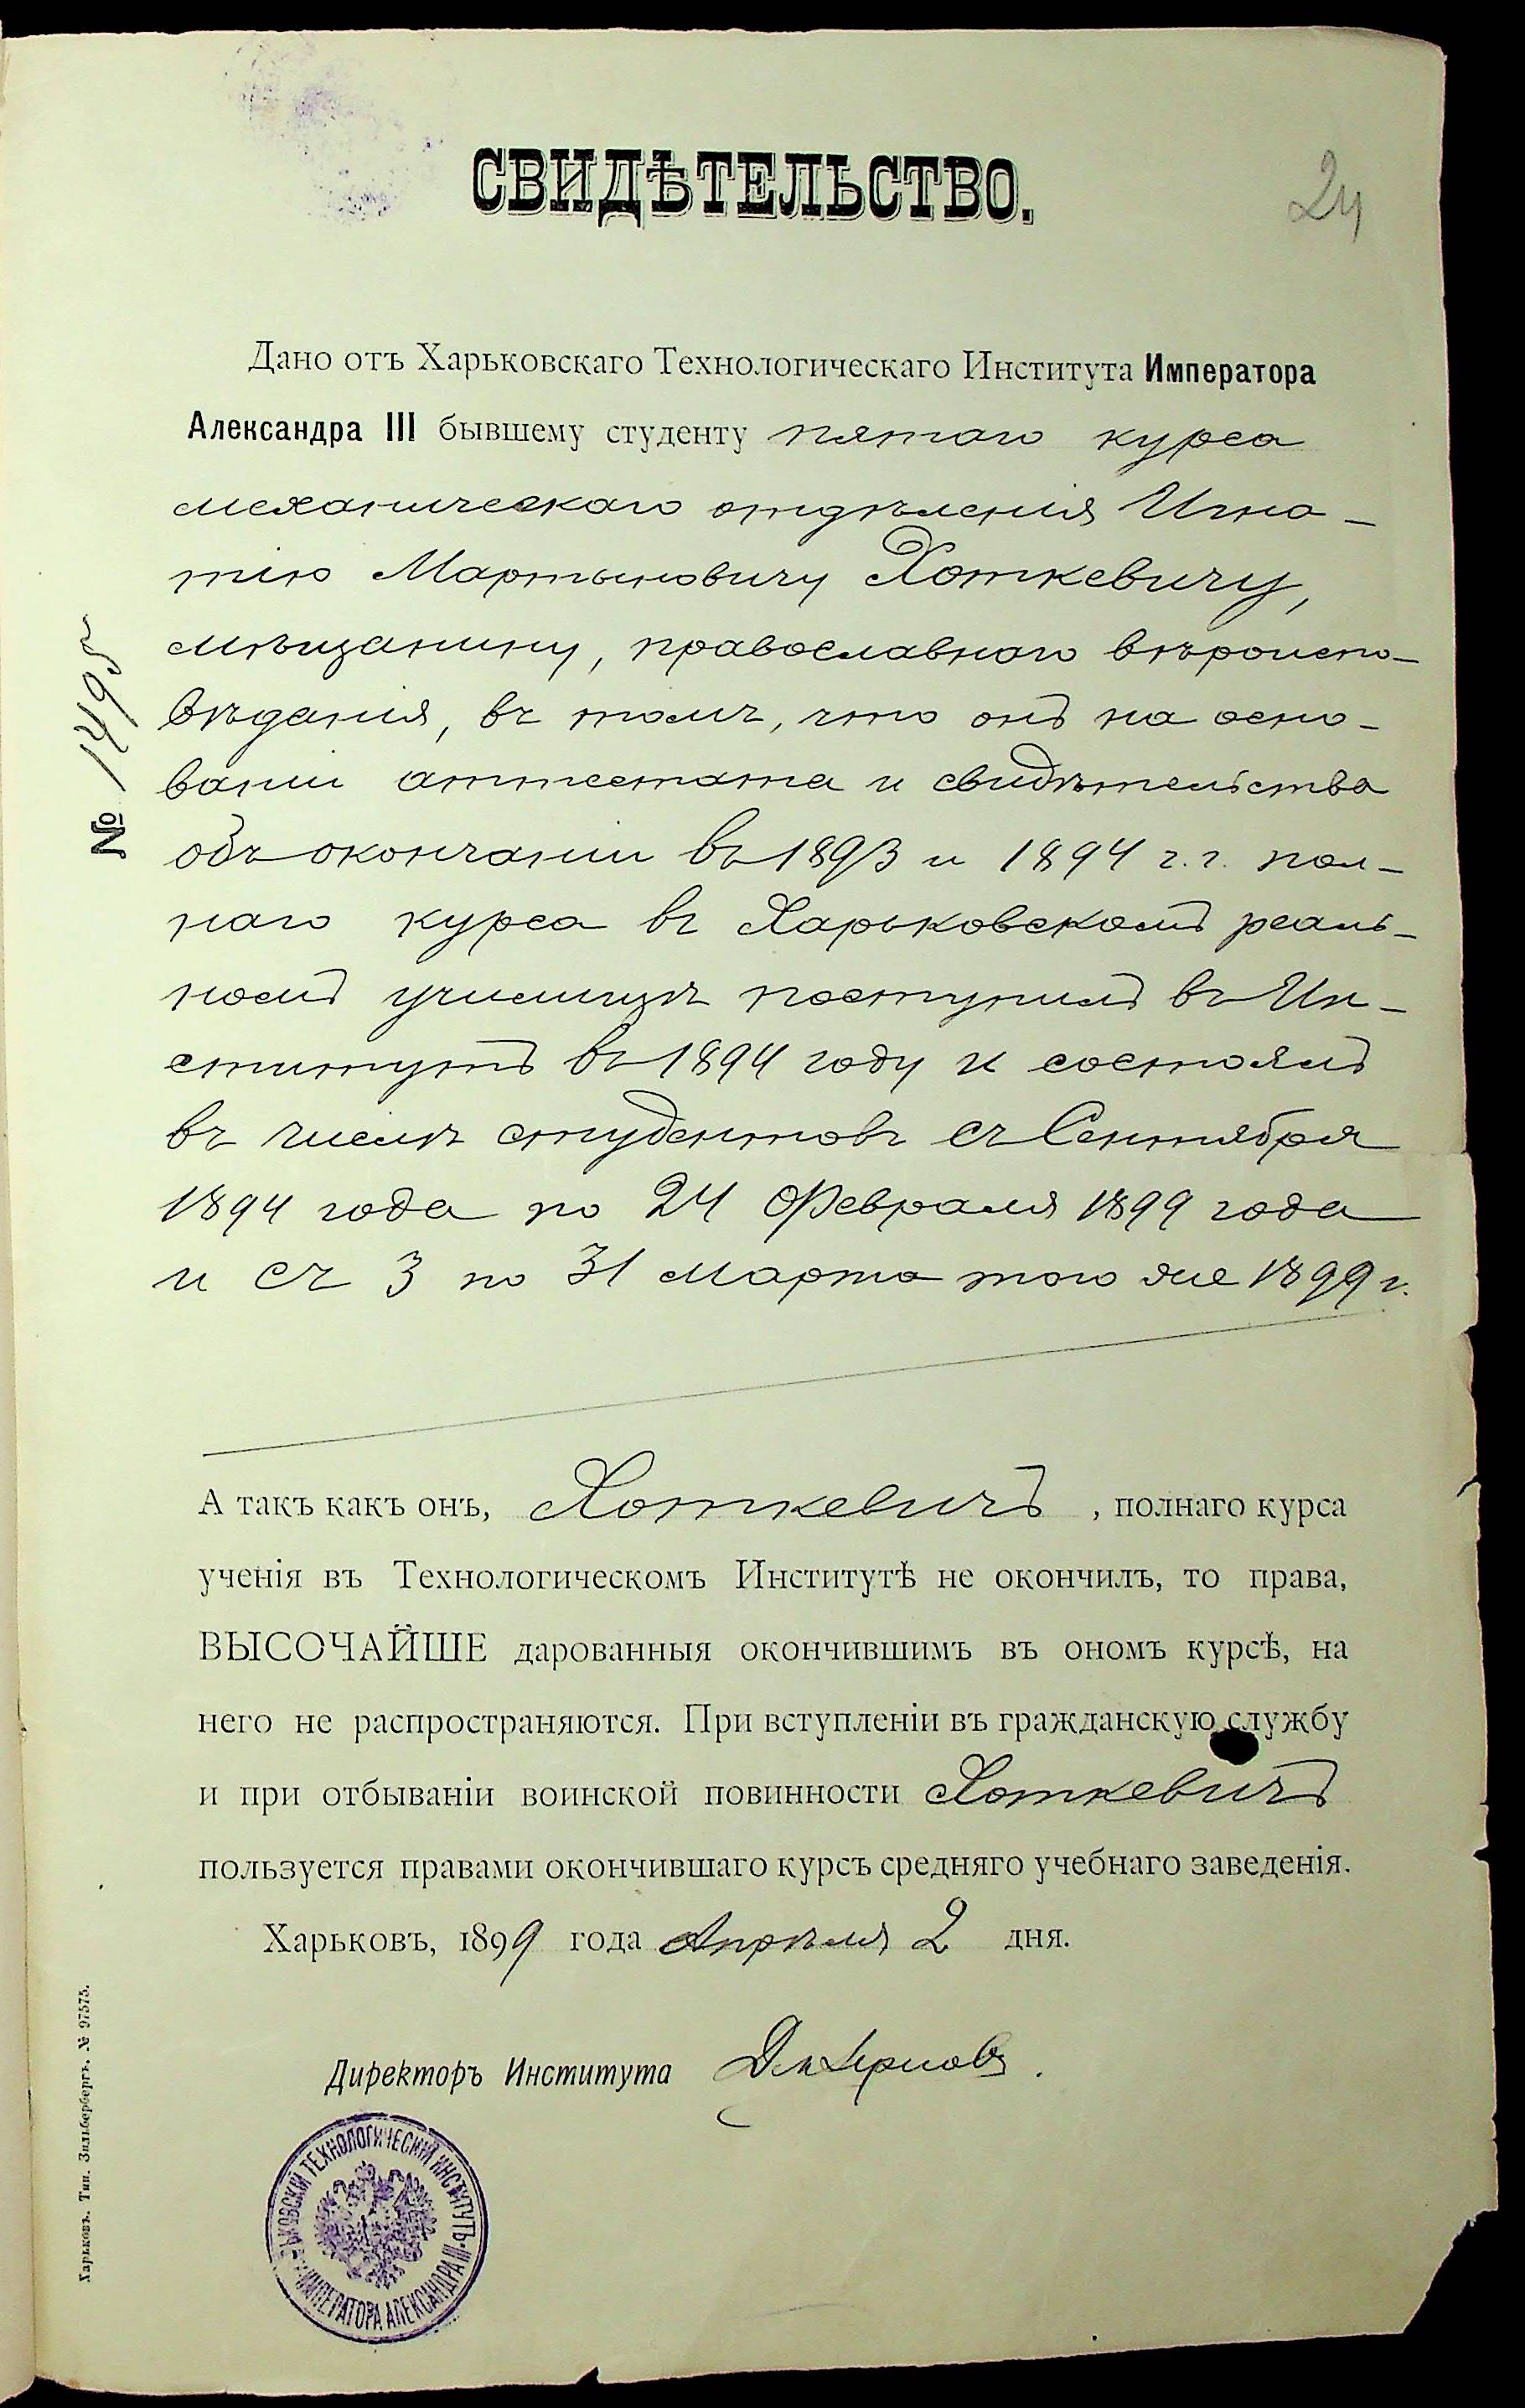 СВИДѢТЕЛЬСТВО.
24
Дано отъ Харьковскаго Технологическаго Института Императора
Александра III бывшему студенту пятаго курса
механическаго отдѣленія Игна-
тію Мартыновичу Хоткевичу,
мѣщанину, православнаго вѣроиспо-
вѣданія, въ томъ, что онъ на осно-
ваніи аттестата и свидѣтельства
объ окончаніи въ 1893 и 1894 г.г. пол-
наго курса въ Харьковскомъ реаль-
номъ училищѣ поступилъ въ Ин-
ститутъ въ 1894 году и состоялъ
въ числѣ студентовъ съ Сентября
1894 года по 24 Февраля 1899 года
и съ 3 по 31 Марта того же 1899 г.
№ 1495
А такъ какъ онъ, Хоткевичъ, полнаго курса
ученія въ Технологическомъ Институтѣ не окончилъ, то права,
ВЫСОЧАЙШЕ дарованныя окончившимъ въ ономъ курсѣ, на
него не распространяются. При вступленіи въ гражданскую службу
и при отбываніи воинской повинности Хоткевичъ
пользуется правами окончившаго курсъ средняго учебнаго заведенія.
Харьковъ, 1899 года Апрѣля 2 дня.
Директоръ Института
ЬКОВСКІЙ ТЕХНОЛОГИЧЕСКІЙ ИНСТИТУТЪ ИМПЕРАТОРА АЛЕКСАНДРА III
Харьковъ. Тип. Зильбербергъ. № 97575.